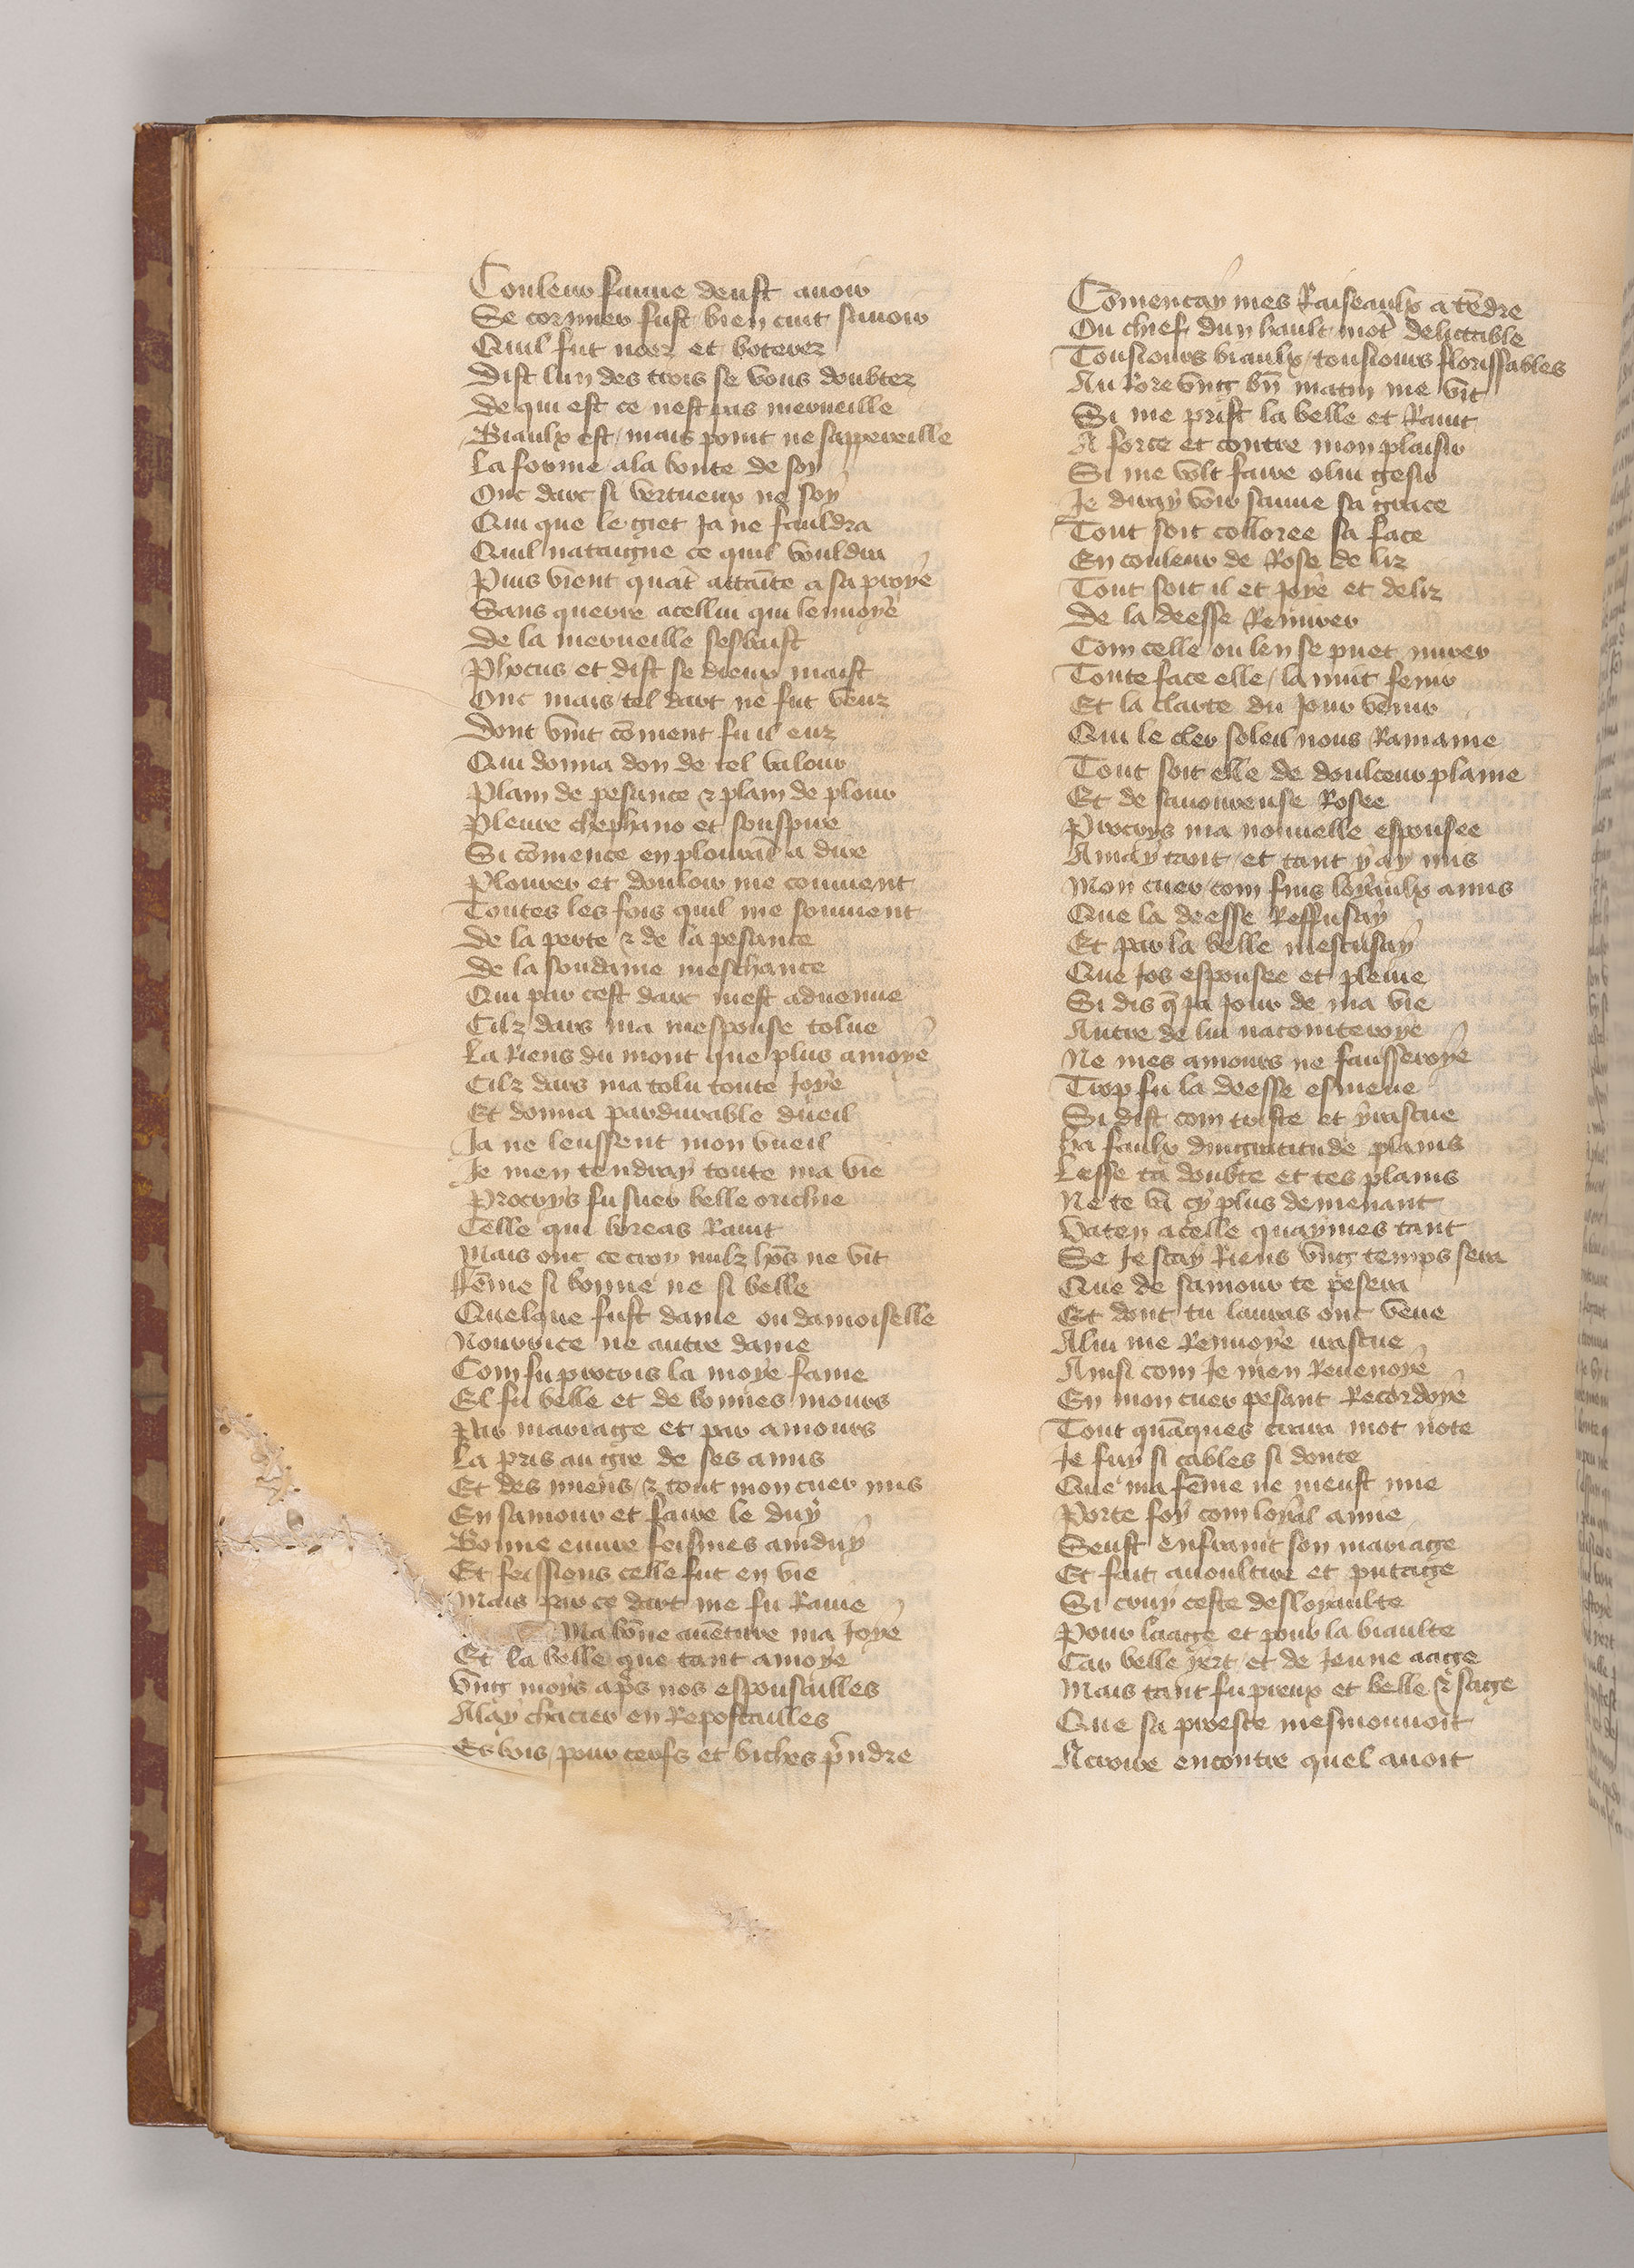 Couleur fauue deust auoir
Se cormier fust bien cuit sauoir
Quil fut noez et boterez
Dist lun des trois se vous doubtez
De qui est ce nest pas merueille
Biaulx est / mais point ne sappereille
La forme ala bonte de soy
Onc darc si vertueux ne soy
Qui que le giet Ja ne fauldra
Quil nataigne ce quil vouldra
Puis vient quāt attaīte a sa proye
Sans querre acellui qui lenuoye
De la merueille sesbaist
Phocus et dist se dieux maist
Onc mais / tel dart ne fut veuz
Dont vint cōment fu il euz
Qui donna don de tel valour
Plain de pesance & plain de plour
Pleure chephano et souspire
Si cōmence en plourāt a dire
Plourer et douloir me conuient
Toutes les fois quil me souuient
De la perte & de la pesance
De la soudaine meschance
Qui par cest darc mest aduenue
Cilz dars ma mespouse tolue
La Riens du mont que plus amoye
Cilz dars ma tolu toute Joye
Et donna pardurable dueil
Ja ne leussent mon vueil
Je men tendray toute ma vie
Procrys fu suer belle orichie
Celle qui boreas Rauit
Mais onc ce croy nulz hōs ne vit
Fēme si bonne ne si belle
Quelque fust dame ou damoiselle
Nourrice ne autre dame
Com fu procris la moye fame
El fu belle et de bonnes mours
Par mariage et par amours
La pris au gre de ses amis
Et des miens / & tout mon cuer mis
En samour et faire le duy
Bonne euure feismes amduy
Et feissions celle fut en vie
Mais par ce dart me fu Rauie
Ma bōne auēture ma Joye
Et la belle que tant amoye
Vng moys aps nos espousailles
Alay chacier en Repostailles
Es bois / pour cerfs et biches pndre
Cōmencay mes Raiseaulx a tēdre
Ou chief dun hault mot delittable
Tousiours biaulx / tousiours florissables
Au Fore vng bn matin me vit
Si me prist la belle et Rauit
A force et contre mon plaisir
Si me volt faire o lui gesir
Je diray voir sauue sa grace
Tout soit colloree sa face
En couleur de Rose de liz
Tout soit il et Joye et deliz
De la deesse Remirer
Com celle ou len se puet mirer
Toute face elle / la nuit fenir
Et la clarte du Jour venir
Qui le cler soleil nous Ramaine
Tout soit elle de doulceur plaine
Et de sauoureuse Rosee
Procrys ma nouuelle espousee
Amay tant / et tant y ay mis
Mon cuer com fins loyaulx amis
Que la deesse Reffusay
Et par la belle mescusay
Que Jos espousee et pleuie
Si dis q Ja Jour de ma vie
Autre de lui nacointeroye
Ne mes amours ne fausseroye
Trop fu la deesse esmeue
Si dist com triste et yrascue
Ha faulx dingratitude plains
Lesse ta doubte et tes plains
Ne te va cy plus demenant
Va ten a celle quaymes tant
Se Je scay Riens vng temps sera
Que de samour te pesera
Et dont tu lauras onc veue
A lui me Renuoye irascue
Ainsi com Je men Reuenoye
En mon cuer pesant Recordoye
Tout quāques mot note
Je fuy si cables si doute
Que ma fēme ne meust mie
Porte foy com loyal amie
Seust enfraint son mariage
Et fait auoultire et putage
Si cruy ceste desloyaulte
Pour laage et pour la biaulte
Car belle yert / et de Jeune aage
Mais tant fu preux et belle & sage
Que sa proesce mesmouuoit
A croire encontre quel auoit